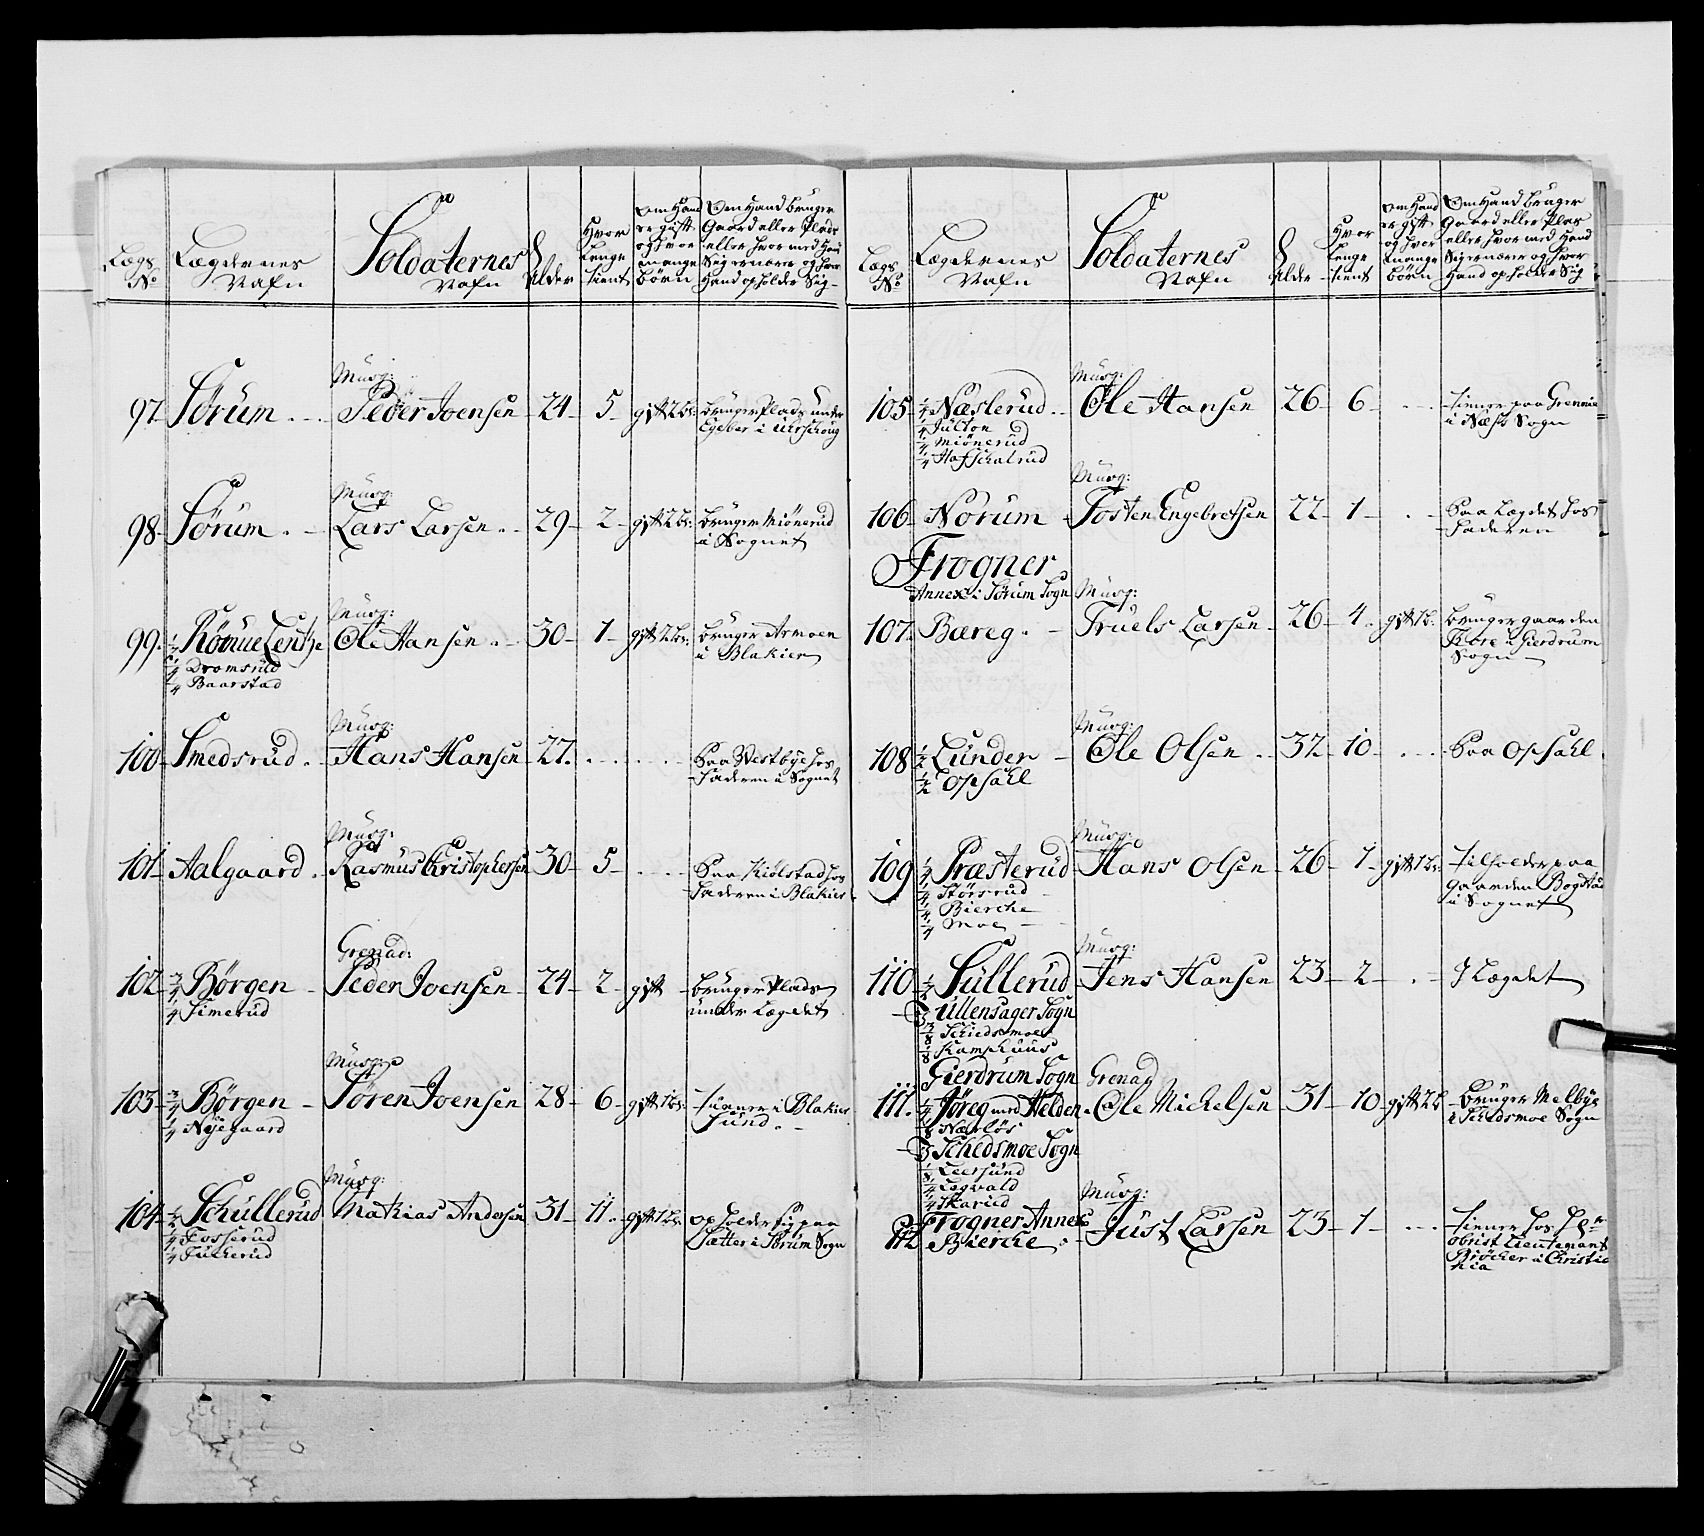 Lægs
No
Lægdernes
Nafn
Soldaternes
Nafn
Alder
Hvor
Lenge
tient
Om Hand
er gift
og hvor
mange
børn
Om Hand bruger
Gaard eller Plads
eller hvor med Hand
Sig ernærer og hvor
Hand opholder Sig
97 Sørum Musq: Peder Joensen 24 5 gift 2 br: bruger Plads under
Egeber i Urschoug
98 Sørum Musq: Lars Larsen 29 2 gift 2 br: bruger Miønerud
i Sognet
99 1/2 Rømue Lentze Musq: Ole Hansen 30 1 gift 2 br: bruger Asmoen
1/4 Dromsrud i Blakier
1/4 Baarstad
100 Smedsrud Musq: Hans Hansen 27 Paa Westbye hos
Faderen i Sognet
101 Aalgaard Musq: Rasmus Christophersen 30 5 Paa Kiølstad hos
Faderen i Blakier
102 3/4 Børgen Grenad: Peder Joensen 24 2 gift bruger Plads
1/4 Simerud under Lægdet
103 3/4 Børgen Musq: Søren Joensen 28 6 gift 1 br: tienner i Blakier
1/4 Nyegaard Sund
104 1/2 Schullerud Musq: Mathias Andersen 31 11 gift 1 br: opholder sig paa
1/4 Fosserud Sætter i Sørum Sogn
1/4 Fucherud
Lægs
No
Lægdernes
Nafn
Soldaternes
Nafn
Alder
Hvor
Lenge
tient
Om Hand
er gift
og hvor
mange
børn
Om Hand bruger
Gaard eller Plas
eller hvor med Hand
Sig ernærer og hvor
Hand opholder Sig
105 1/4 Næslerud Musq: Ole Hansen 26 6 tiener paa
1/4 Julton i Næss Sogn
1/4 Miønerud
1/4 Hafschalrud
106 Norum Musq: Tosten Engebretsen 22 1 Paa Lægdet hos
Faderen
Frogner
Annex i Sørum Sogn
107 Bæreg Musq: Truels Larsen 26 4 gift 1 b: bruger gaarden
i Gierdrum
Sogn
108 1/2 Lunder Musq: Ole Olsen 32 10 Paa Opsahl
1/2 Opsahl
109 1/4 Præsterud Musq: Hans Olsen 26 1 gift 1 br: tilholder paa
1/4 Størsrud gaarden Bogstad
1/4 Bierche i Sognet
1/4 Moe
110 1/2 Sullerud Musq: Jens Hansen 23 2 I Lægdet
Ullensager Sogn
3/8 Schiedsmoe
1/8 Kamphuus
Gierdrum Sogn
111 1/4 Jøreg med Helden Grenad Ole Mickelsen 31 10 gift 2 b bruger Melbye
1/8 Nærløs i Schedsmoe Sogn
Schedsmoe Sogn
1/8 Leersund
1/4 Løgvald
1/4 Skarud
Frogner Annex
112 Bierche Musq: Just Larsen 23 1 tiener hos Hr
Obrist Lieutenant
Brøcher i Christia
nia